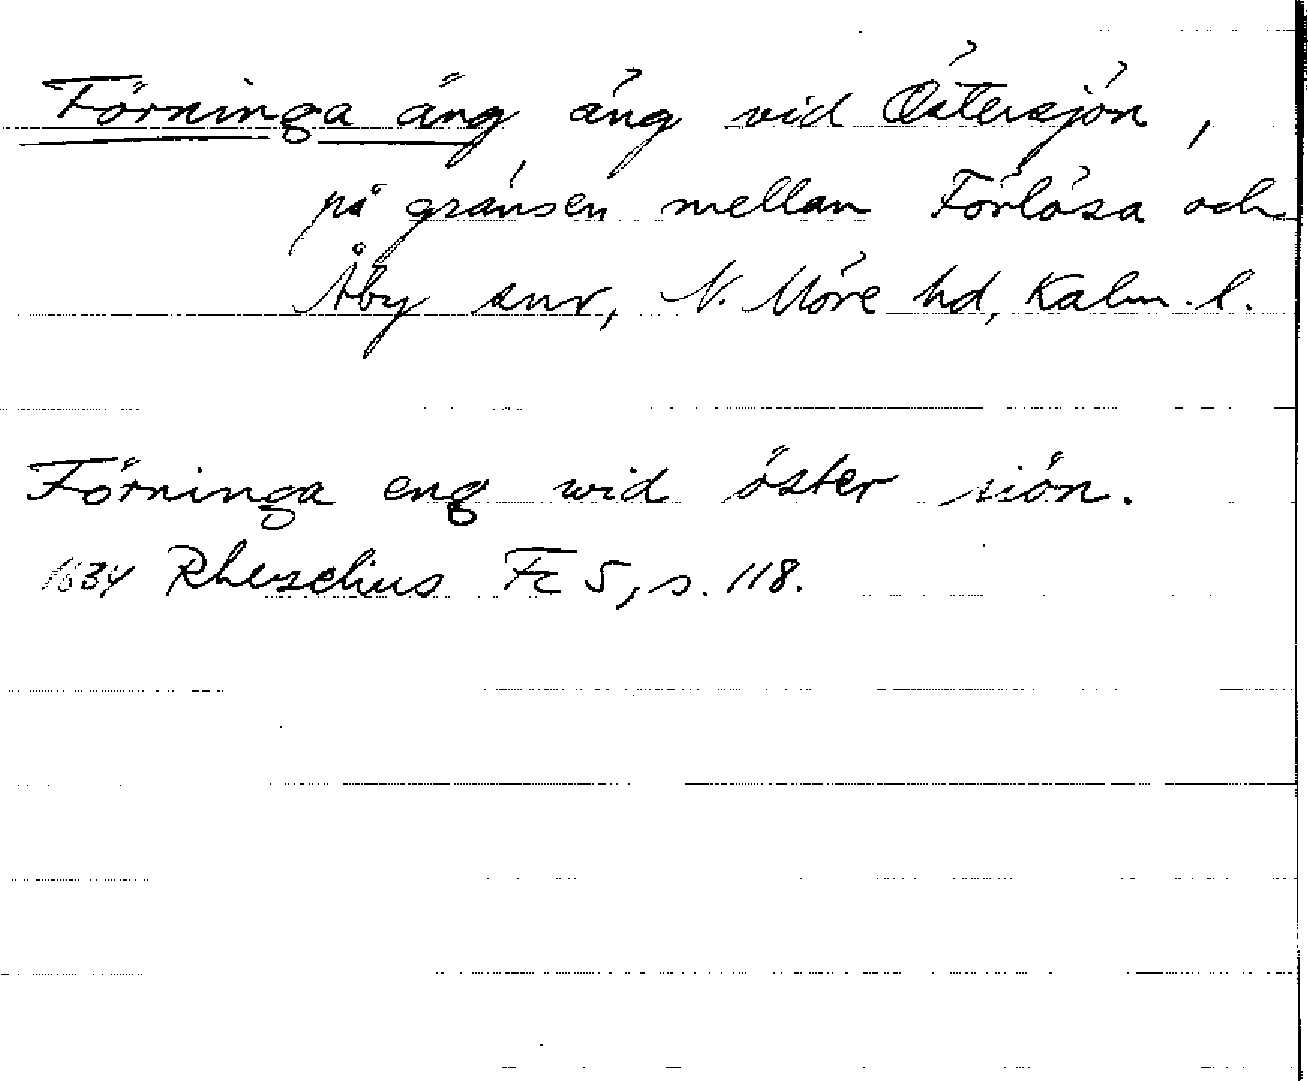 Förninga äng äng vid Östersjön,
på gränsen mellan Förlösa och
Åby snr, N. Möre hd, Kalm. l.
Förninga eng wid öster siön.
1634 Rhezelius Fc 5, s. 118.